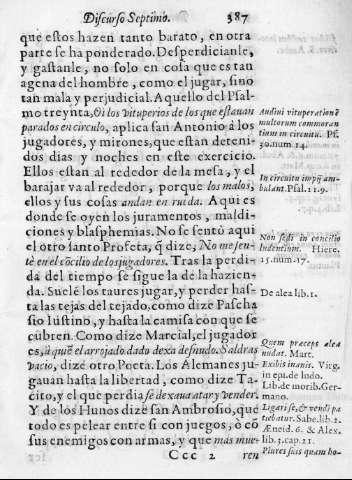 Discurso Septimo. 387
que estos hazen tanto barato, en otra
parte se ha ponderado. Desperdicianle,
y gastanle, no solo en cosa que es tan
agena del hombre, como el jugar, sino
tan mala y perjudicial. Aquello del Psal-
mo treynta, Oi los vituperios de los que estauan
parados en circulo, aplica san Antonio à los
jugadores, y mirones, que estàn deteni-
dos dias y noches en este exercicio.
Ellos estan al rededor de la mesa, y el
barajar va al rededor, porque los malos,
ellos y sus cosas andan en rueda. Aqui es
donde se oyen los juramentos, maldi-
ciones y blasphemias. No se sentò aqui
el otro santo Profeta, q̃ dize, No me sen-
tè en el cõcilio de los jugadores. Tras la perdi
da del tiempo se sigue la de la hazien-
da. Suelẽ los taures jugar, y perder has-
ta las tejas del tejado, como dize Pascha
sio Iustino, y hasta la camisa con que se
cubren. Como dize Marcial, el jugador
es, à quiẽ el arrojado dado dexa desnudo. Saldras
vacio, dize otro Poeta. Los Alemanes ju-
gauan hasta la libertad, como dize Ta-
cito, y el que perdia se dexaua atar y vender.
Y de los Hunos dize san Ambrosio, quẽ
todo es pelear entre si con juegos, ò cõ
sus enemigos con armas, y que mas mue-
Ccc 2 ren
Audini vituperationẽ
multorum commoran
tium in circuitu. Ps.
30. num 14.
In circuitu impij am-
bulant. Psal. 11.9.
Non sedi in concilio
ludentium. Hiere.
15. num. 17.
De alea lib. 1.
Quem praeceps alea
nudat. Mart.
Exibis inanis. Virg.
in epa. de ludo.
Lib. de morib. Ger-
mano.
Ligari se, & vendi pa
tiebatur. Sabe. lib. 2.
Æneid. 6. & Alex.
lib. 3. cap. 21.
Plures suis quam ho-